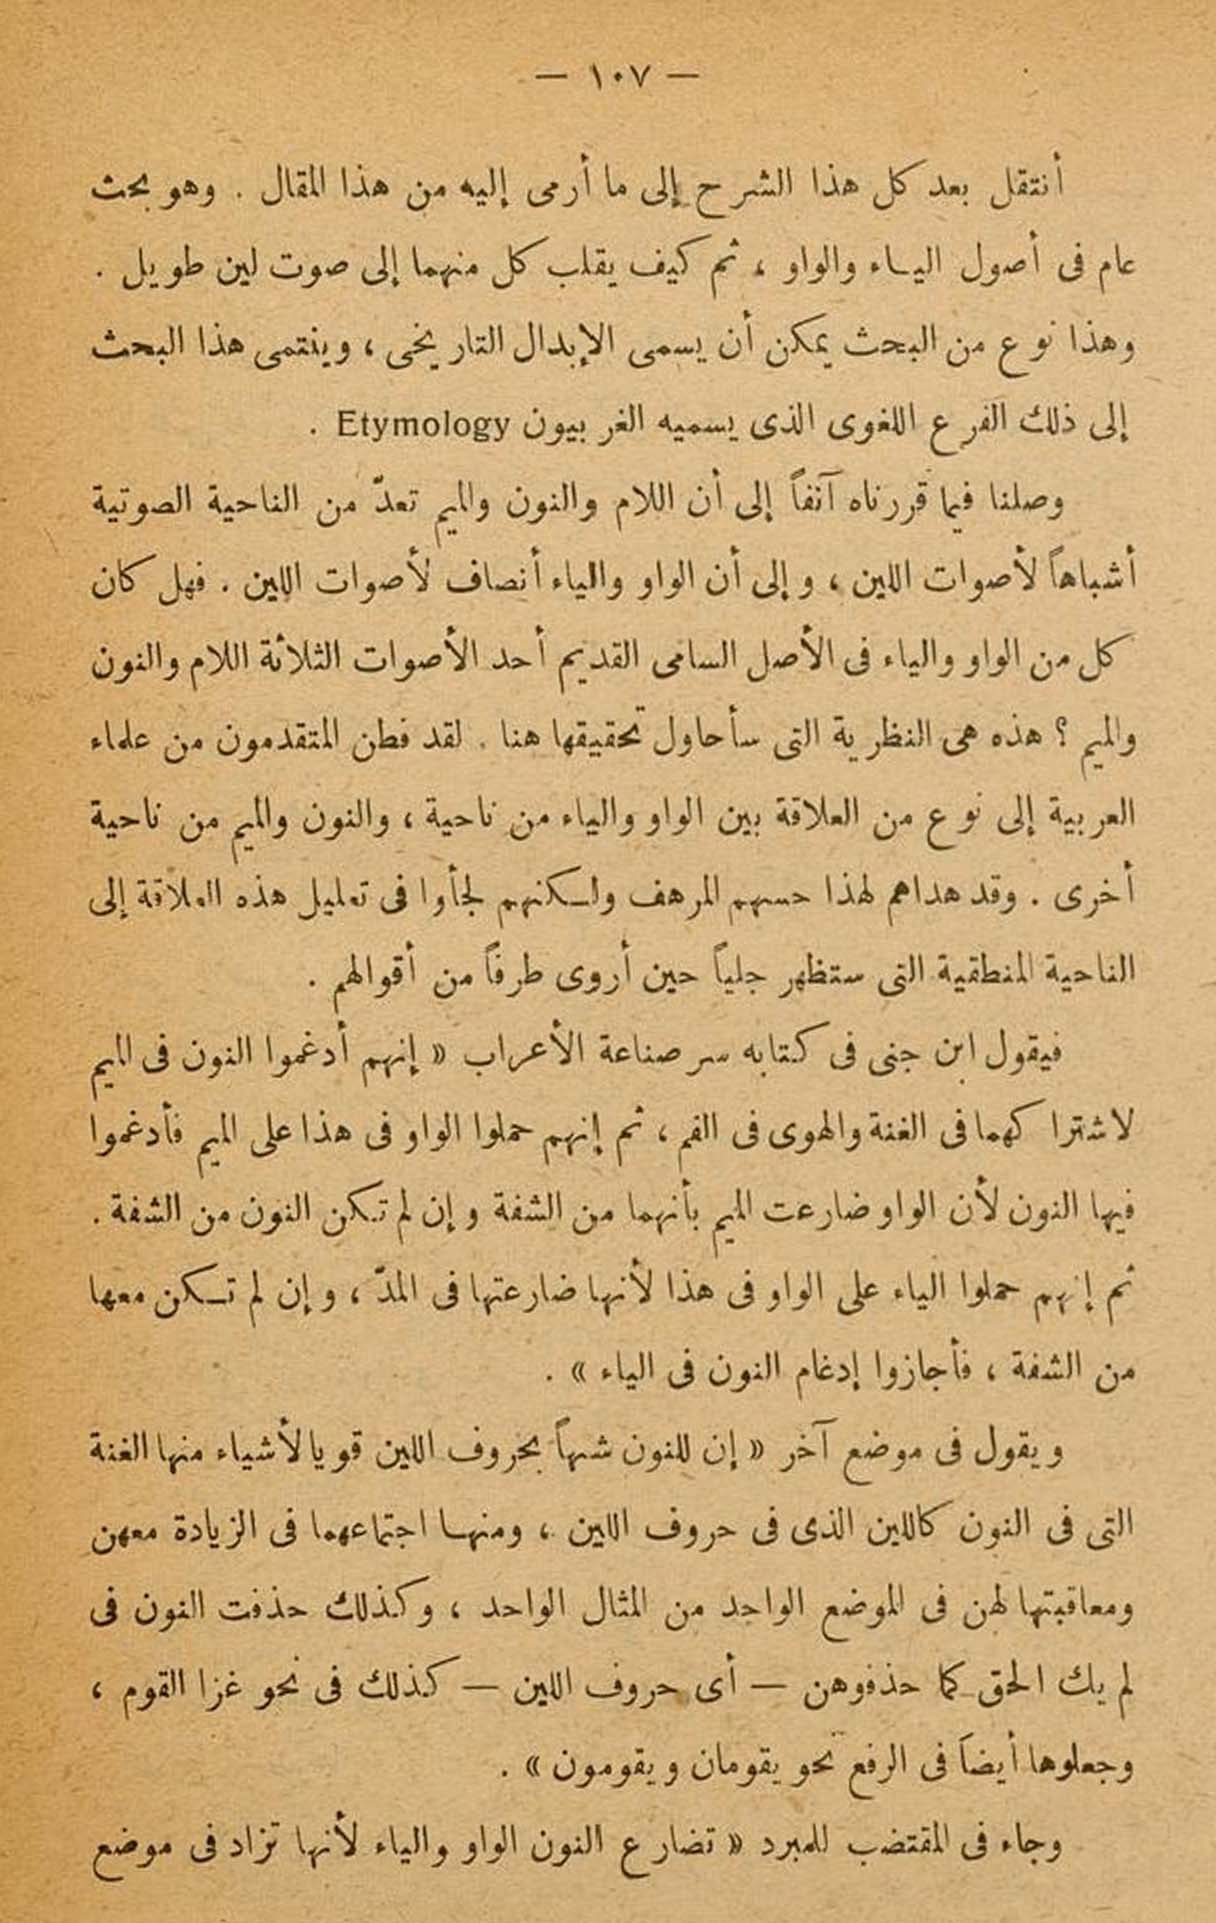 — ١٠٧ —
أنتقل بعد كل هذا الشرح إلى ما أرمى إليه من هذا المقال . وهو بحث
عام فى أصول اليـاء والواو ، ثم كيف يقلب كل منهما إلى صوت لين طويل .
وهذا نوع من البحث يمكن أن يسمى الإبدال التاريخى ، وينتمى هذا البحث
إلى ذلك الفرع اللغوى الذى يسميه الغربيون Etymology .
وصلنا فيما قررناه آنفاً إلى أن اللام والنون والميم تعدّ من الناحية الصوتية
أشباهاً لأصوات اللين ، وإلى أن الواو والياء أنصاف لأصوات اللين . فهل كان
كل من الواو والياء فى الأصل السامى القديم أحد الأصوات الثلاثة اللام والنون
والميم ؟ هذه هى النظرية التى سأحاول تحقيقها هنا . لقد فطن المتقدمون من علماء
العربية إلى نوع من العلاقة بين الواو والياء من ناحية ، والنون والميم من ناحية
أخرى . وقد هداهم لهذا حسهم المرهف ولـكنهم لجأوا فى تعليل هذه العلاقة إلى
الناحية المنطقية التى ستظهر جلياً حين أروى طرفاً من أقوالهم .
فيقول ابن جنى فى كتابه سر صناعة الأعراب « إنهم أدغموا النون فى الميم
لاشتراكهما فى الغنة والهوى فى الفم ، ثم إنهم حملوا الواو فى هذا على الميم فأدغموا
فيها النون لأن الواو ضارعت الميم بأنهما من الشفة وإن لم تـكن النون من الشفة .
ثم إنهم حملوا الياء على الواو فى هذا لأنها ضارعتها فى المدّ ، وإن لم تـكن معها
من الشفة ، فأجازوا إدغام النون فى الياء » .
ويقول فى موضع آخر « إن للنون شبهاً بحروف اللين قويا لأشياء منها الغنة
التى فى النون كاللين الذى فى حروف اللين ، ومنهـا اجتماعهما فى الزيادة معهن
ومعاقبتها لهن فى الموضع الواحد من المثال الواحد ، وكذلك حذفت النون فى
لم يك الحق كما حذفوهن — أى حروف اللين — كذلك فى نحو غزا القوم ،
وجعلوها أيضاً فى الرفع نحو يقومان ويقومون » .
وجاء فى المقتضب للمبرد « تضارع النون الواو والياء لأنها تزاد فى موضع